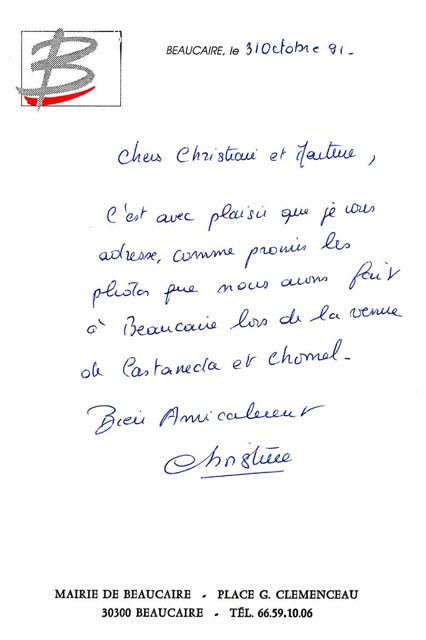 B
BEAUCAIRE, le 31 Octobre 91_
Chers Christian et Martine,
C'est avec plaisir que je vous
adresse, comme promis les
photos que nous avons fait
à Beaucaire lors de la venue
de Castaneda et Chomel_
Bien Amicalement
Christine
MAIRIE DE BEAUCAIRE - PLACE G. CLEMENCEAU
30300 BEAUCAIRE - TÉL. 66.59.10.06